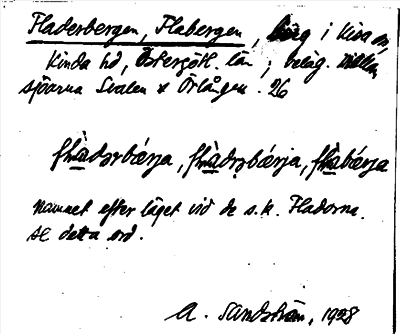 Fladerbergen, Flabergen, berg i Kisa sn,
Kinda hd, Östergötl. län; beläg. mellan
sjöarna Svalen & Örlången. 26
Namnet efter läget vid de s.k. Fladorna.
se detta ord.
A. Sandström, 1928